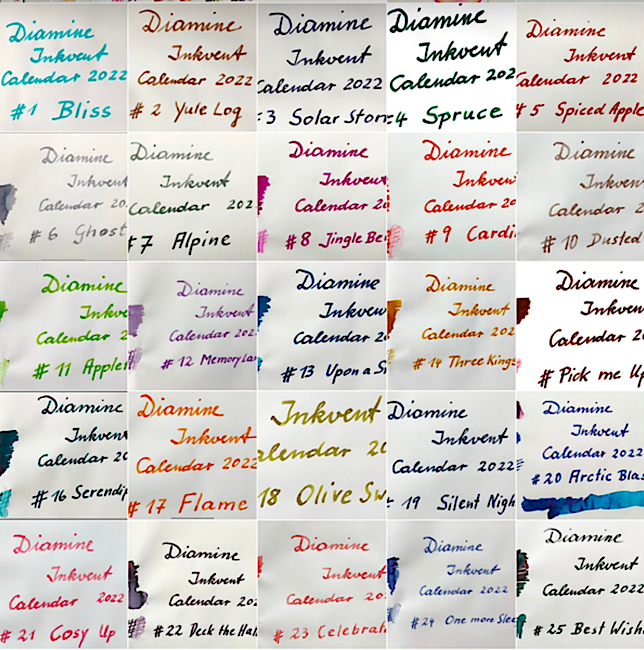 Diamine
Inkvent
Calendar 2022
#1 Bliss
Diamine
Inkvent
Calendar 2022
# 2 Yule Log
Diamine
Inkvent
Calendar 2022
3 Solar Storm
Diamine
Inkvent
Calendar 202
4 Spruce
Diamine
Inkvent
Calendar 2022
# 5 Spiced Apple
Diamine
Inkvent
Calendar 20
# 6 Ghost
Diamine
Inkvent
Calendar 202
#7 Alpine
Diamine
Inkvent
Calendar 2
#8 Jingle Be
Diamine
Inkven
Calendar 20
#9 Cardi
Diamine
Inkven
Calendar 2
# 10 Dusted
Diamine
Inkve
Calendar 2
# 11 Apple
Diamine
Inkvent
Calendar 202
# 12 Memory La
Diamine
Inkven
Calendar 2
#13 Upon a S
Diamine
Inkvent
Calendar 202
# 14 Three Kings
Diamine
Inkven
Calendar 2
# Pick me Up
Diamine
Inkven
Calendar 20
#16 Serendip
Diamine
Inkvent
Calendar 2022
#17 Flame
Inkvent
alendar 20
18 Olive Sw
Diamine
Inkvent
Calendar 2022
19 Silent Nigh
Diamine
Inkvent
Calendar 2022
#20 Arctic Blas
Diamine
Inkvent
Calendar 2022
# 21 Cosy Up
Diamine
Inkvent
Calendar 202
#22 Deck the Hal
Diamine
Inkvent
Calendar 20
# 23 Celebrat
Diamine
Inkvent
Calendar 2022
#24 One more Slee
Diamine
Inkvent
Calendar 2022
#25 Best Wish